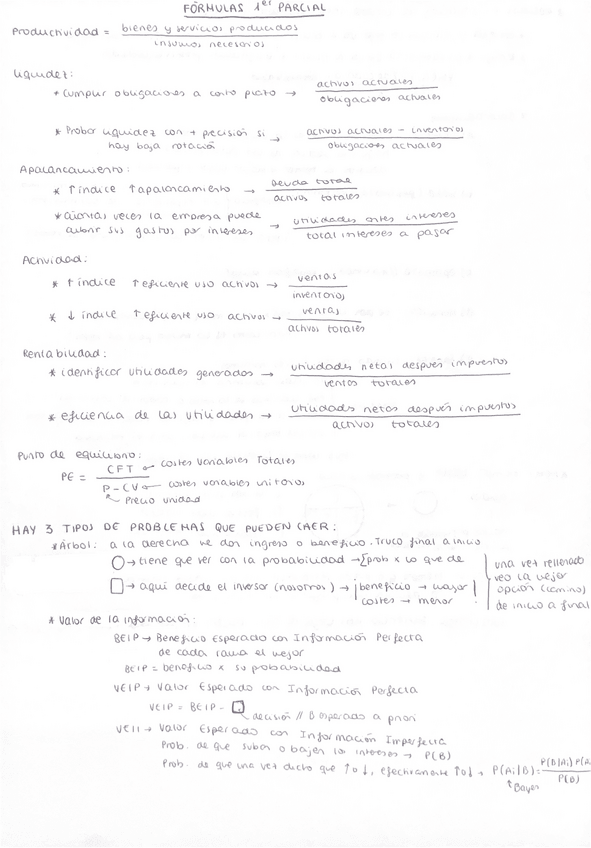 FÓRMULAS 1er PARCIAL
Productividad = bienes y servicios producidos / insumos necesarios
Liquidez:
* Cumplir obligaciones a corto plazo → activos actuales / obligaciones actuales
* Probar liquidez con + precisión si hay baja rotación → activos actuales - inventarios / obligaciones actuales
Apalancamiento:
* ↑ índice ↑ apalancamiento → Deuda total / activos totales
* Cuántas veces la empresa puede cubrir sus gastos por intereses → utilidades antes intereses / total intereses a pagar
Actividad:
* ↑ índice ↑ eficiente uso activos → ventas / inventarios
* ↓ índice ↑ eficiente uso activos → ventas / activos totales
Rentabilidad:
* identificar utilidades generadas → utilidades netas después impuestos / ventas totales
* eficiencia de las utilidades → utilidades netas después impuestos / activos totales
Punto de equilibrio:
PE = CFT / P - CV
costes variables Totales
costes variables unitarios
Precio unidad
HAY 3 TIPOS DE PROBLEMAS QUE PUEDEN CAER:
* Árbol: a la derecha ve dos ingreso o beneficio. Truco final a inicio
○ → tiene que ver con la probabilidad → Σ prob x lo que de
□ → aquí decide el inversor (nosotros) → ¡beneficio → mayor
costes → menor!
una vez rellenado
veo la mejor
opción (camino)
de inicio a final
* Valor de la información:
BEIP → Beneficio Esperado con Información Perfecta
de cada rama el mejor
BEIP = beneficio x su probabilidad
VEIP → Valor Esperado con Información Perfecta
VEIP = BEIP - □
decisión // B esperado a priori
VEII → Valor Esperado con Información Imperfecta
Prob. de que suban o bajen los intereses → P(B)
Prob. de que una vez dicho que ↑ o ↓, efectivamente ↑ o ↓ → P(Ai|B) = P(B|Ai) P(A / P(B)
Bayes